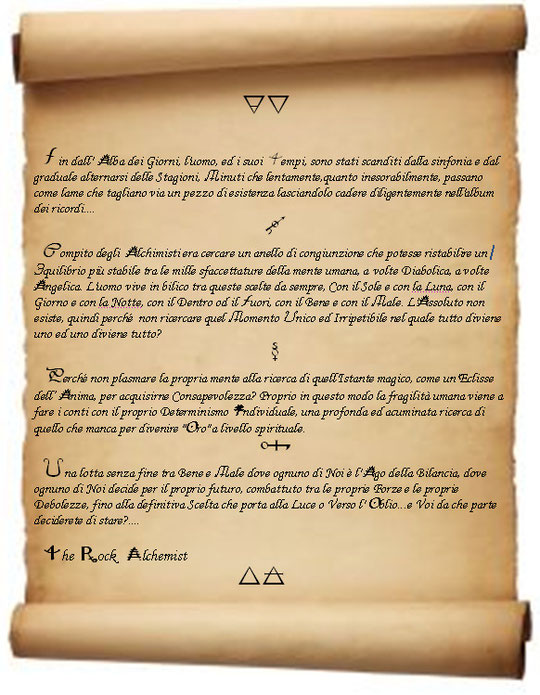 Fin dall' Alba dei Giorni, l'uomo, ed i suoi Tempi, sono stati scanditi dalla sinfonia e dal
graduale alternarsi delle Stagioni, Minuti che lentamente,quanto inesorabilmente, passano
come lame che tagliano via un pezzo di esistenza lasciandolo cadere diligentemente nell'album
dei ricordi....
Compito degli Alchimisti era cercare un anello di congiunzione che potesse ristabilire un
Equilibrio più stabile tra le mille sfaccettature della mente umana, a volte Diabolica, a volte
Angelica. L'uomo vive in bilico tra queste scelte da sempre, Con il Sole e con la Luna, con il
Giorno e con la Notte, con il Dentro od il Fuori, con il Bene e con il Male. L'Assoluto non
esiste, quindi perchè non ricercare quel Momento Unico ed Irripetibile nel quale tutto diviene
uno ed uno diviene tutto?
Perchè non plasmare la propria mente alla ricerca di quell'Istante magico, come un'Eclisse
dell' Anima, per acquisirne Consapevolezza? Proprio in questo modo la fragilità umana viene a
fare i conti con il proprio Determinismo Individuale, una profonda ed acuminata ricerca di
quello che manca per divenire "Oro" a livello spirituale.
Una lotta senza fine tra Bene e Male dove ognuno di Noi è l'Ago della Bilancia, dove
ognuno di Noi decide per il proprio futuro, combattuto tra le proprie Forze e le proprie
Debolezze, fino alla definitiva Scelta che porta alla Luce o Verso l' Oblio...e Voi da che parte
deciderete di stare?....
The Rock Alchemist